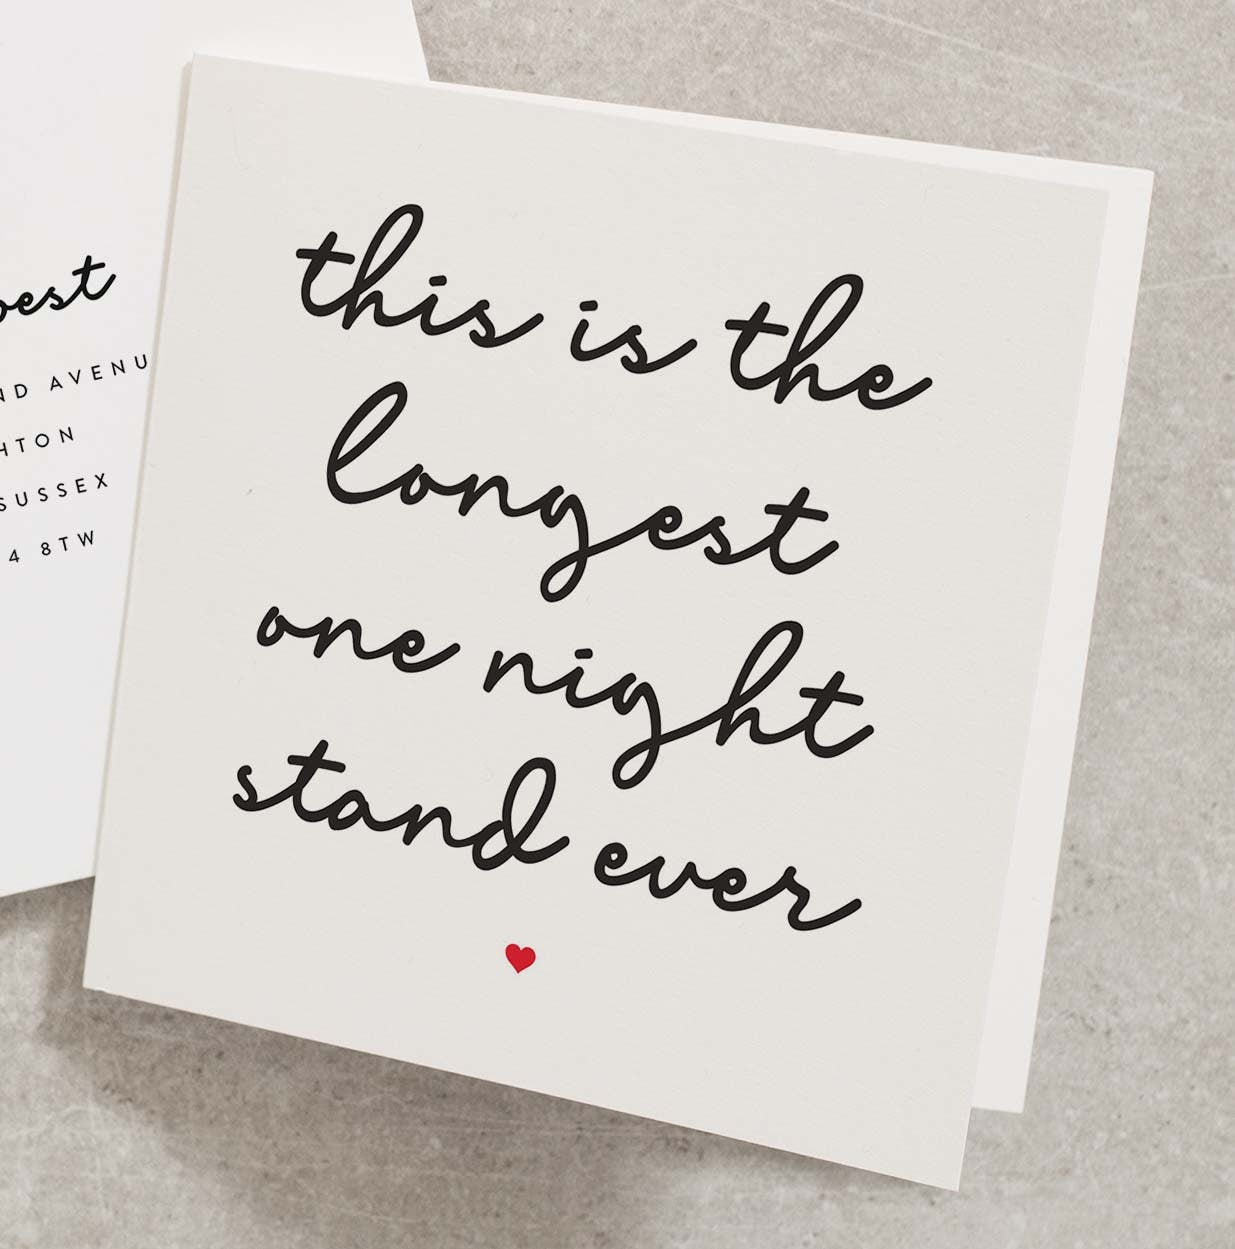 this is the
longest
one night
stand ever
AVENU
SUSSEX
4 8TW